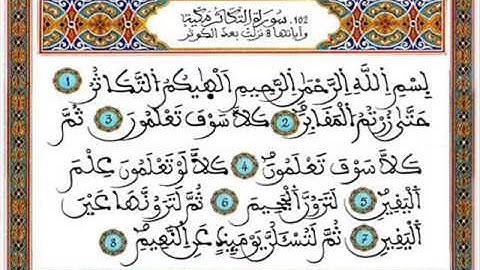 102. سورة التكاثر مكية
وآياتها 8 نزلت بعد الكوثر
بِسْمِ اللَّهِ الرَّحْمَٰنِ الرَّحِيمِ أَلْهَيٰكُمُ التَّكَاثُرُ 1
حَتَّىٰ زُرْتُمُ الْمَقَابِرَ 2 كَلَّا سَوْفَ تَعْلَمُونَ 3 ثُمَّ
كَلَّا سَوْفَ تَعْلَمُونَ 4 كَلَّا لَوْ تَعْلَمُونَ عِلْمَ
الْيَقِينِ 5 لَتَرَوُنَّ الْجَحِيمَ 6 ثُمَّ لَتَرَوُنَّهَا عَيْنَ
الْيَقِينِ 7 ثُمَّ لَتُسْـَٔلُنَّ يَوْمَئِذٍ عَنِ النَّعِيمِ 8